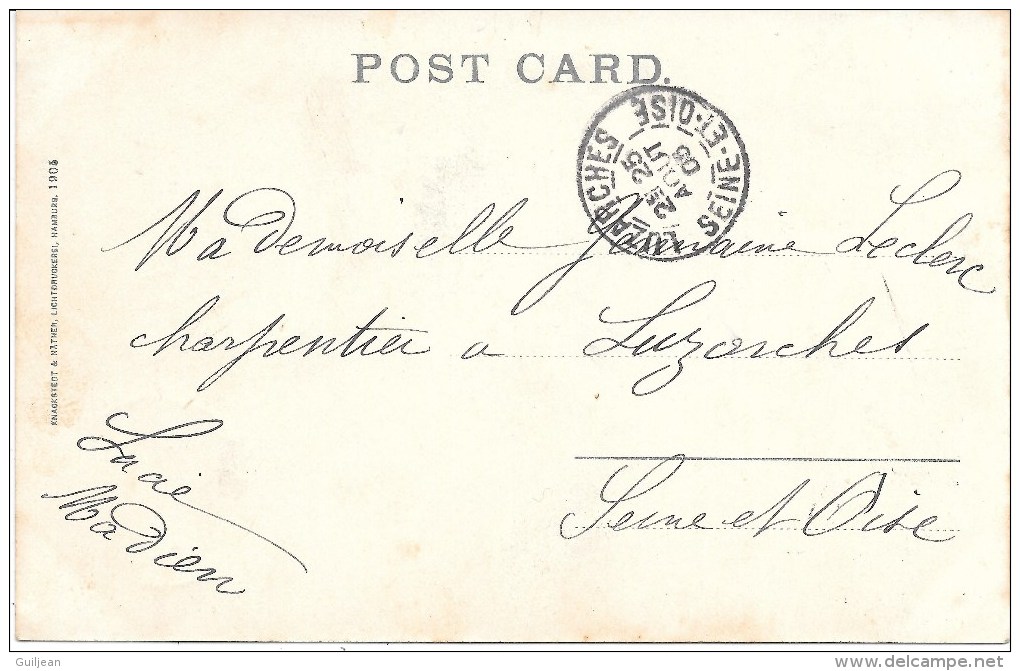 POST CARD.
LUZARCHES SEINE-ET-OISE
2E 25
AOUT
05
KNACKSTEDT & NÄTHER, LICHTDRUCKEREI, HAMBURG. 1905
Mademoiselle Germaine Leclerc
charpentier a Luzarches
Seine et Oise
Lucie
Madien
Guiljean
www.delcampe.net